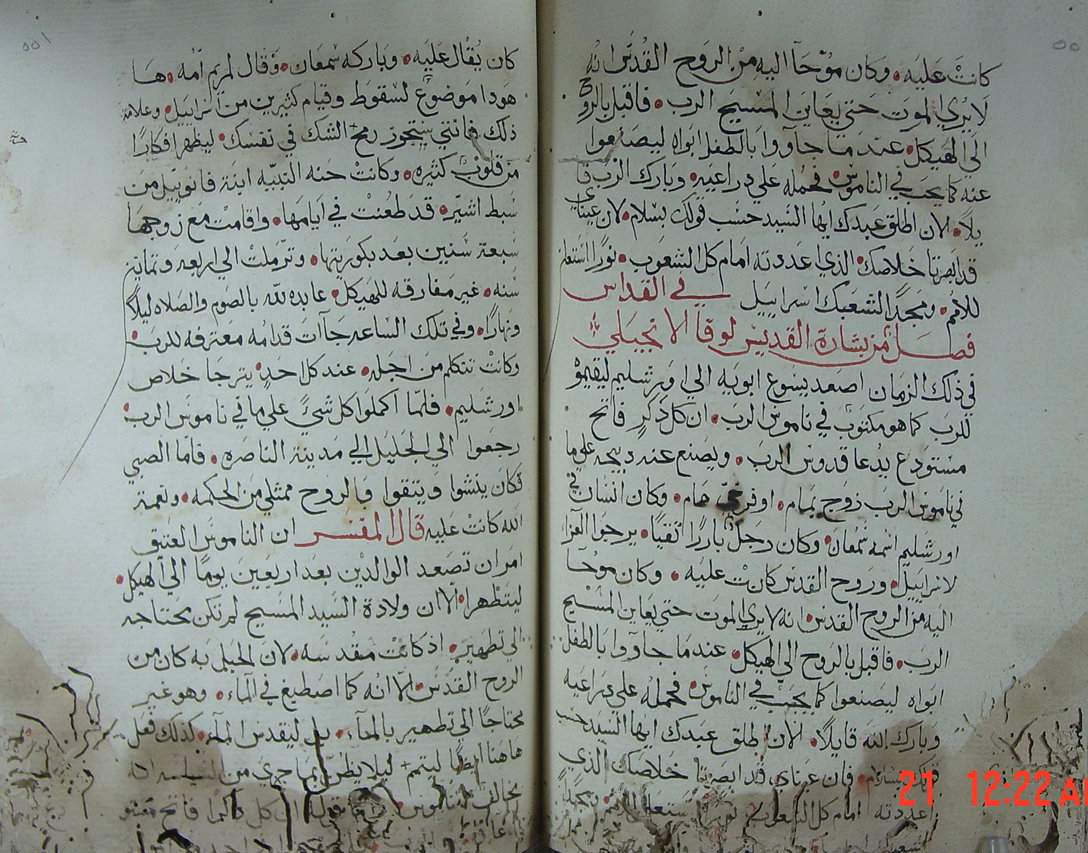 كانت عليه وكان موحا اليه من الروح القدس انه
لا يري الموت حتي يعاين المسيح الرب فاقبل بالروح
الي الهيكل عند ما جاووا بالطفل ابواه ليصنعوا
عنه كما يجب في الناموس فحمله علي دراعيه وبارك الرب قا
يلا الان اطلق عبدك ايها السيد حسب قولك بسلام لان عيناي
قد ابصرتا خلاصك الذي اعددته امام كل الشعوب نورا استعلن
للامم ومجدا لشعبك اسراييل في القداس
فصل من بشارة القديس لوقا الانجيلي
في ذلك الزمان اصعد يسوع ابويه الي اورشليم ليقيموه
للرب كما هو مكتوب في ناموس الرب ان كل ذكر فاتح
مستودع يدعا قدوس الرب ويصنع عنه دبيحه علي ما
في ناموس الرب زوج يمام او فرخي حمام وكان انسان في
اورشليم اسمه سمعان وكان رجل بارا تقيا يرجوا العزا
لاسراييل وروح القدس كانت عليه وكان موحا
اليه من الروح القدس انه لا يري الموت حتي يعاين المسيح
الرب فاقبل بالروح الي الهيكل عندما جاووا بالطفل
ابواه ليصنعوا كما يجب في الناموس فحمله علي دراعيه
وبارك الله قايلا الان اطلق عبدك ايها السيد حسب
قولك بسلام فان عيناي قد ابصرتا خلاصك الذي
اعددته امام كل الشعوب نورا
كان يقال عليه وباركه سمعان وقال لمريم امه ها
هودا موضوع لسقوط وقيام كثيرين من اسراييل وعلامة
ذلك فانتي ستجوز رمح الشك في نفسك ليظهر افكارا
من قلوب كثيره وكانت حنه النبيه ابنة فانوييل من
سبط اشير قد طعنت في ايامها واقامت مع زوجها
سبعة سنين بعد بكوريتها وترملت الي اربعه وتمانين
سنه غير مفارقه للهيكل عابده لله بالصوم والصلاه ليلا
ونهارا وفي تلك الساعه جاات قدامه معترفه للرب
وكانت تتكلم من اجله عند كل احد يترجا خلاص
اورشليم فلما اكملوا كل شئ علي ما في ناموس الرب
رجعوا الي الجليل الي مدينة الناصره فاما الصبي
فكان ينشوا ويتقوا والروح ممتلي من الحكمه ونعمة
الله كانت عليه قال المفسر ان الناموس العتيق
امر ان تصعد الوالدين بعد اربعين يوما الي الهيكل
ليتطهرا الا ان ولادة السيد المسيح لم تكن محتاجه
الي تطهير اذ كانت مقدسه لان الحبل به كان من
الروح القدس الا انه كما اصطبغ في الماء وهو غير
محتاجا الي تطهير بالماء بل ليقدس الماء كذلك فعل
هاهنا ايضا ليتمم ليلا يظن بما جري من
يخالف الناموس كل ذكرا فاتح